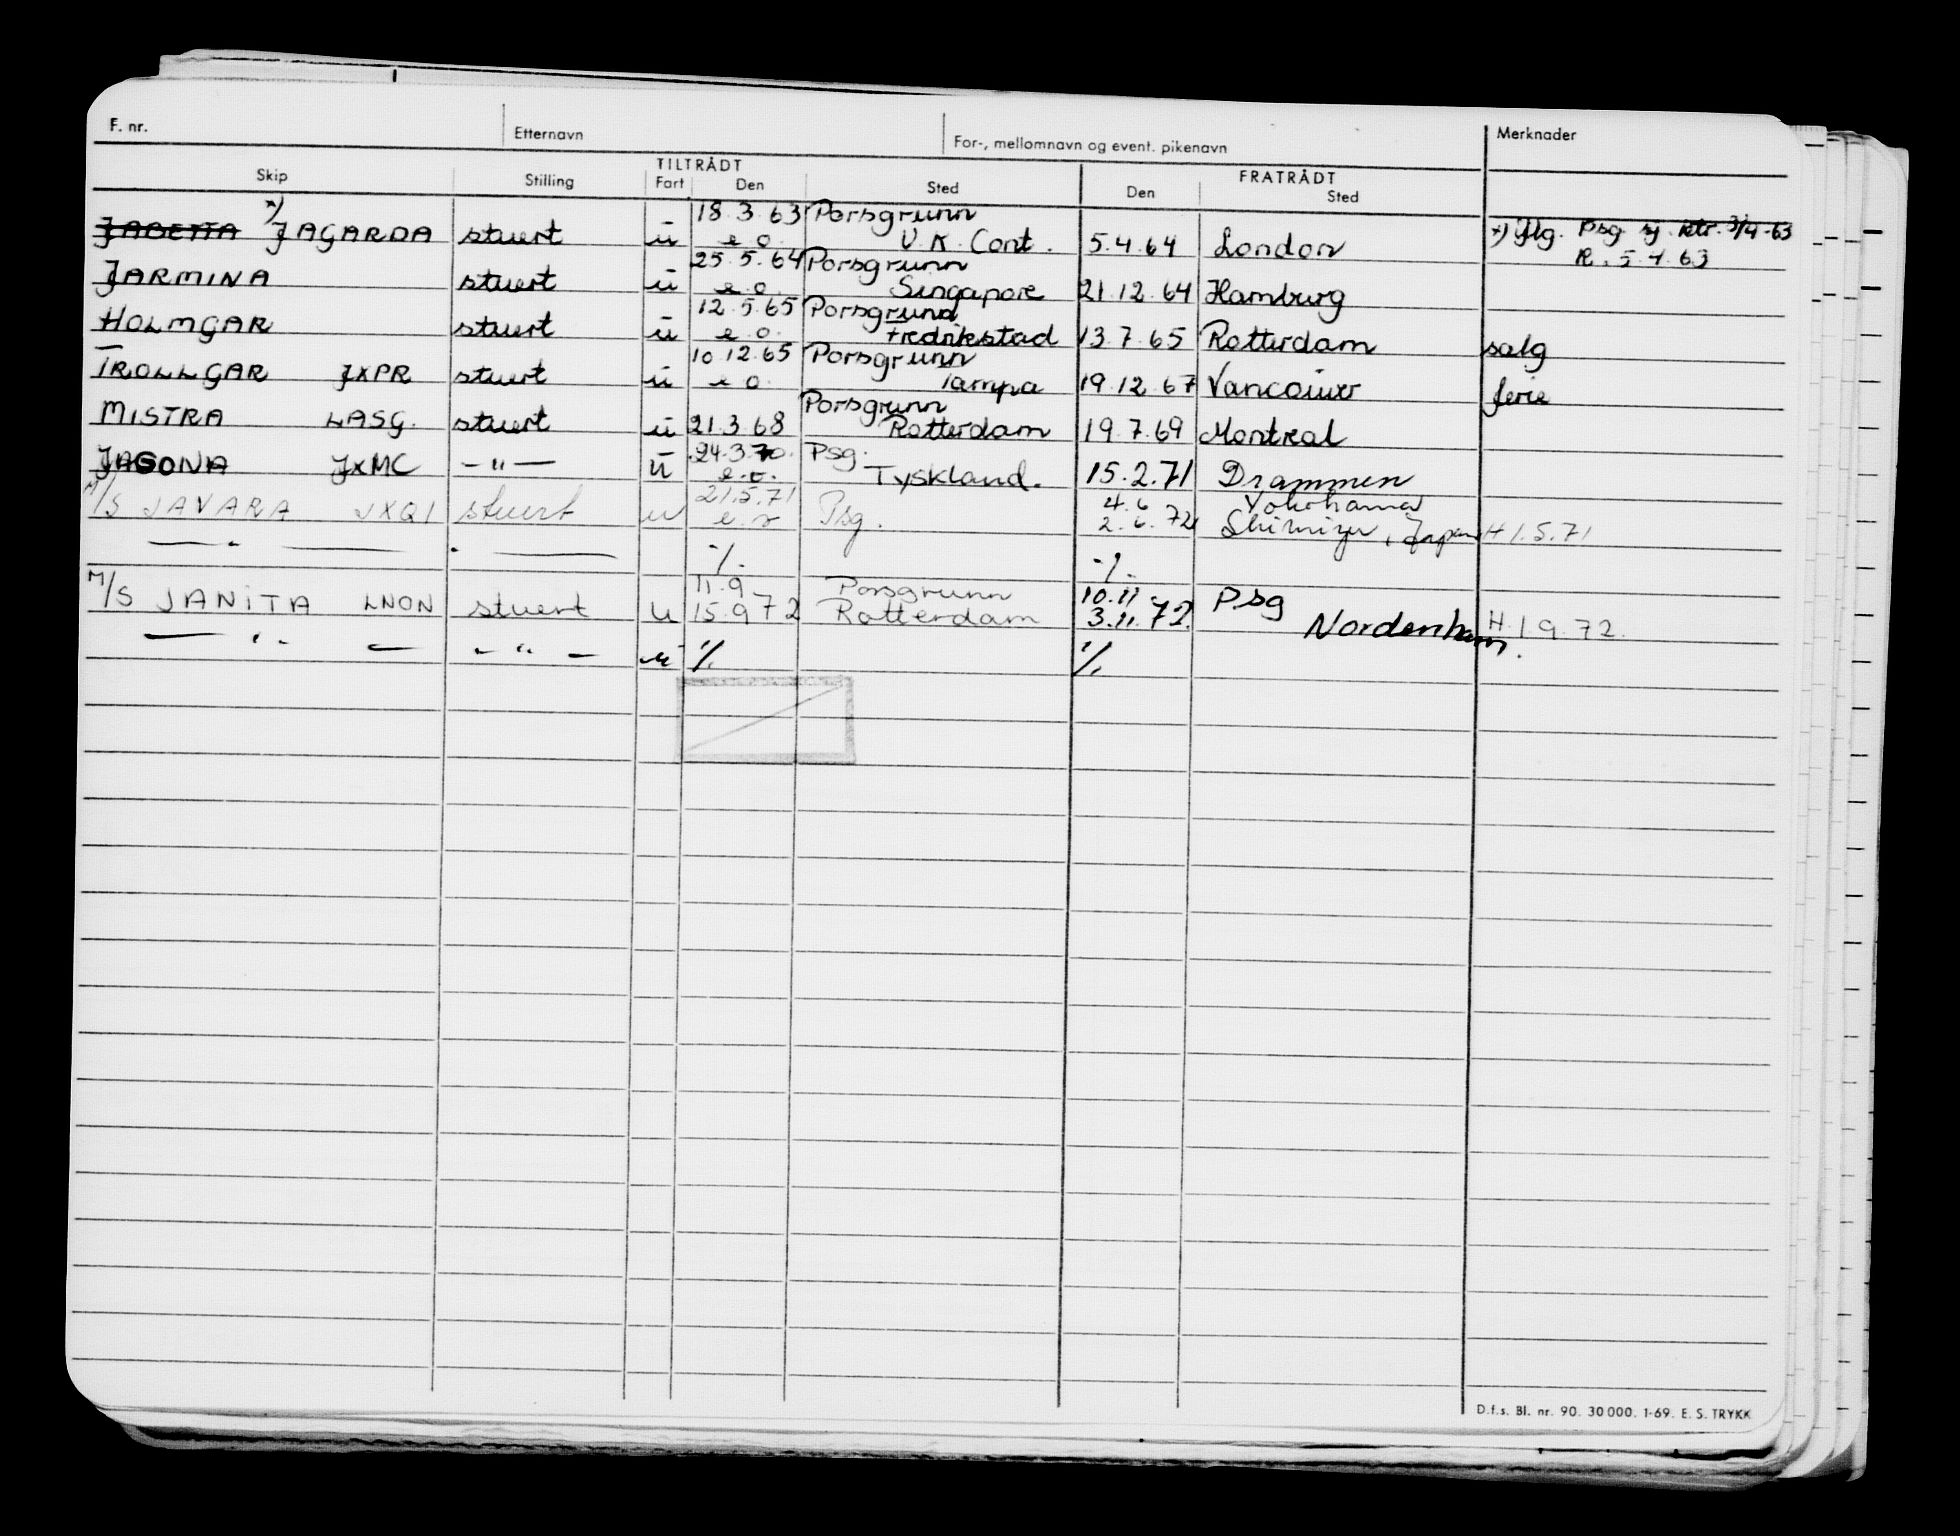 F. nr. Etternavn For-, mellomnavn og event. pikenavn Merknader
TILTRÅDT FRATRÅDT
Skip Stilling Fart Den Sted Den Sted
18.3.63 Porsgrunn
JABETTA *) JAGARDA stuert u e.o. U.K. Cont. 5.4.64 London *) Psg. sj. ktr. 3/4-63
R. 5.4.63
25.5.64 Porsgrunn
JARMINA stuert u e.o. Singapore 21.12.64 Hamburg
12.5.65 Porsgrunn
HOLMGAR stuert u e.o. Fredrikstad 13.7.65 Rotterdam salg
10.12.65 Porsgrunn
TROLLGAR JXPR stuert u e.o. Tampa 19.12.67 Vancouver ferie
Porsgrunn
MISTRA LASG. stuert u 21.3.68 Rotterdam 19.7.69 Montreal
24.3.70. Psg.
JAGONA JXMC - " - u e.o. Tyskland. 15.2.71 Drammen
21.5.71 4.6 Yokohama
M/S JAVARA JXQI stuert u Psg. 2.6.72 Shimizu, Japan H 1.5.71
— " — " — -/- -/-
11.9 Porsgrunn 10.11 Psg
M/S JANITA LNON stuert u 15.972 Rotterdam 3.11.72. Nordenham. H.1.9.72.
— " — - " - u -/- -/-
D.f.s. Bl. nr. 90. 30 000. 1-69. E. S. TRYKK